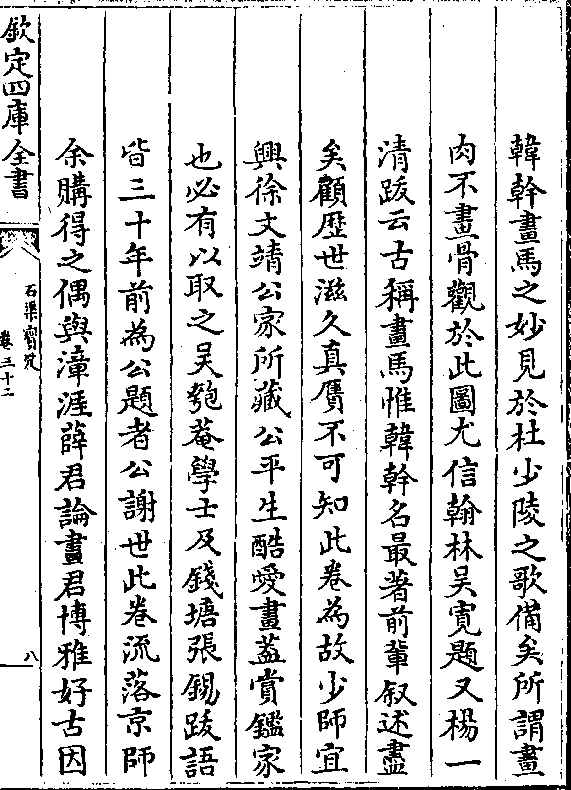 韓幹畫馬之妙見於杜少陵之歌備矣所謂畫
肉不畫骨觀於此圖尤信翰林吴寛題又楊一
清䟦云古稱畫馬惟韓幹名最著前輩叙述盡
矣顧歴世滋久真贋不可知此卷為故少師宜
興徐文靖公家所藏公平生酷愛畫葢賞鑑家
也必有以取之吴匏菴學士及錢塘張錫䟦語
皆三十年前為公題者公謝世此卷流落京師
余購得之偶與漳涯薛君論畫君博雅好古因
欽定四庫全書
石渠寳笈
卷三十二
八